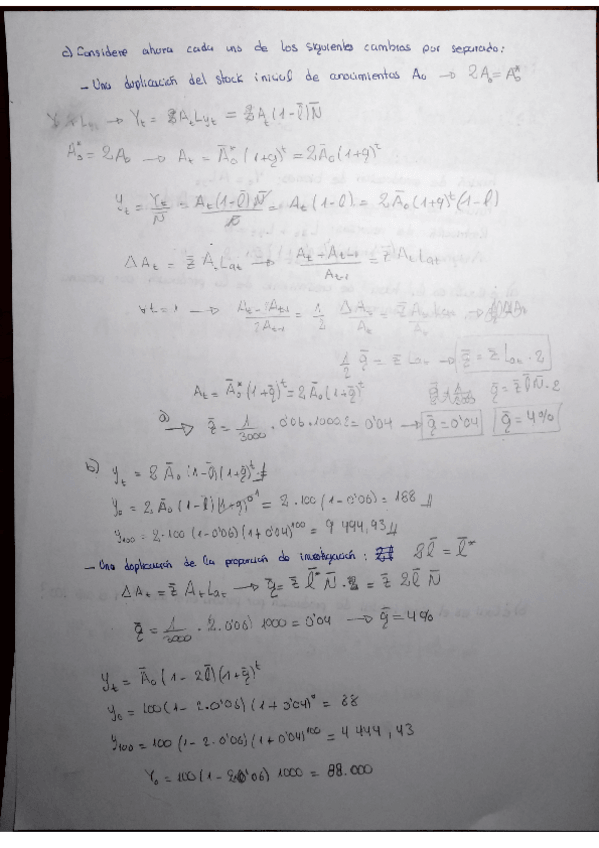 c) Considere ahora cada uno de los siguientes cambios por separado:
- Una duplicación del stock inicial de conocimientos A₀ → 2A₀ = A₀*
→ Yₜ = AₜLyₜ = Aₜ(1-l̄)N̄
A₀* = 2A₀ → Aₜ = Ā₀*(1+g)ᵗ = 2Ā₀(1+g)ᵗ
yₜ = Yₜ/N̄ = Aₜ(1-l̄)N̄/N̄ = Aₜ(1-l) = 2Ā₀(1+g)ᵗ(1-l)
ΔAₜ = z̄ AₜLaₜ → (Aₜ - Aₜ₋₁)/Aₜ₋₁ = z̄ AₜLaₜ
∀t=1 → = 1/2
1/2 ḡ = z̄ Laₜ → ḡ = z̄ Laₜ · 2
Aₜ = Ā₀*(1+ḡ)ᵗ = 2Ā₀(1+ḡ)ᵗ ḡ = z̄ l̄ N̄ · 2
a) → ḡ = 1/3000 · 0'06 · 1000 · 2 = 0'04 → ḡ = 0'04 ḡ = 4%
b) yₜ = 2Ā₀(1-l̄)(1+ḡ)ᵗ
y₀ = 2Ā₀(1-l̄)(1+g)⁰ = 2·100(1-0'06) = 188
y₁₀₀ = 2·100(1-0'06)(1+0'04)¹⁰⁰ = 9 494,93
- Una duplicación de la proporción de investigación: 2l̄ = l̄*
ΔAₜ = z̄ AₜLaₜ → ḡ = z̄ l̄* N̄ = z̄ 2l̄ N̄
ḡ = 1/3000 · 2·0'06 · 1000 = 0'04 → ḡ = 4%
yₜ = Ā₀(1-2l̄)(1+ḡ)ᵗ
y₀ = 100(1-2·0'06)(1+0'04)⁰ = 88
y₁₀₀ = 100(1-2·0'06)(1+0'04)¹⁰⁰ = 4 444,43
Y₀ = 100(1-2·0'06) 1000 = 88.000